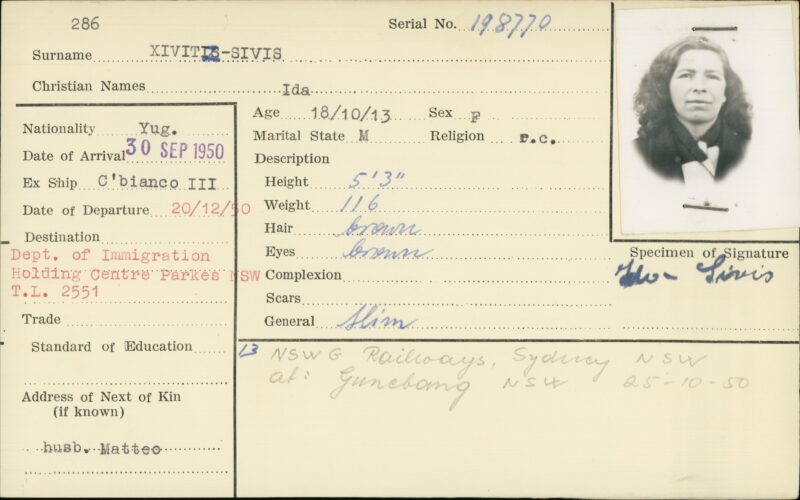 286
Serial No. 198770
Surname XIVITIS-SIVIS
Christian Names Ida
Nationality Yug.
Date of Arrival 30 SEP 1950
Ex Ship C'bianco III
Date of Departure 20/12/50
Destination
Dept. of Immigration
Holding Centre Parkes NSW
T.L. 2551
Trade
Standard of Education
Address of Next of Kin
(if known)
husb. Matteo
Age 18/10/13 Sex F
Marital State M Religion r.c.
Description
Height 5'3"
Weight 116
Hair brown
Eyes brown
Complexion
Scars
General slim
Specimen of Signature
Ida Sivis
13 NSWG Railways, Sydney NSW
at: Gunebang NSW 25-10-50